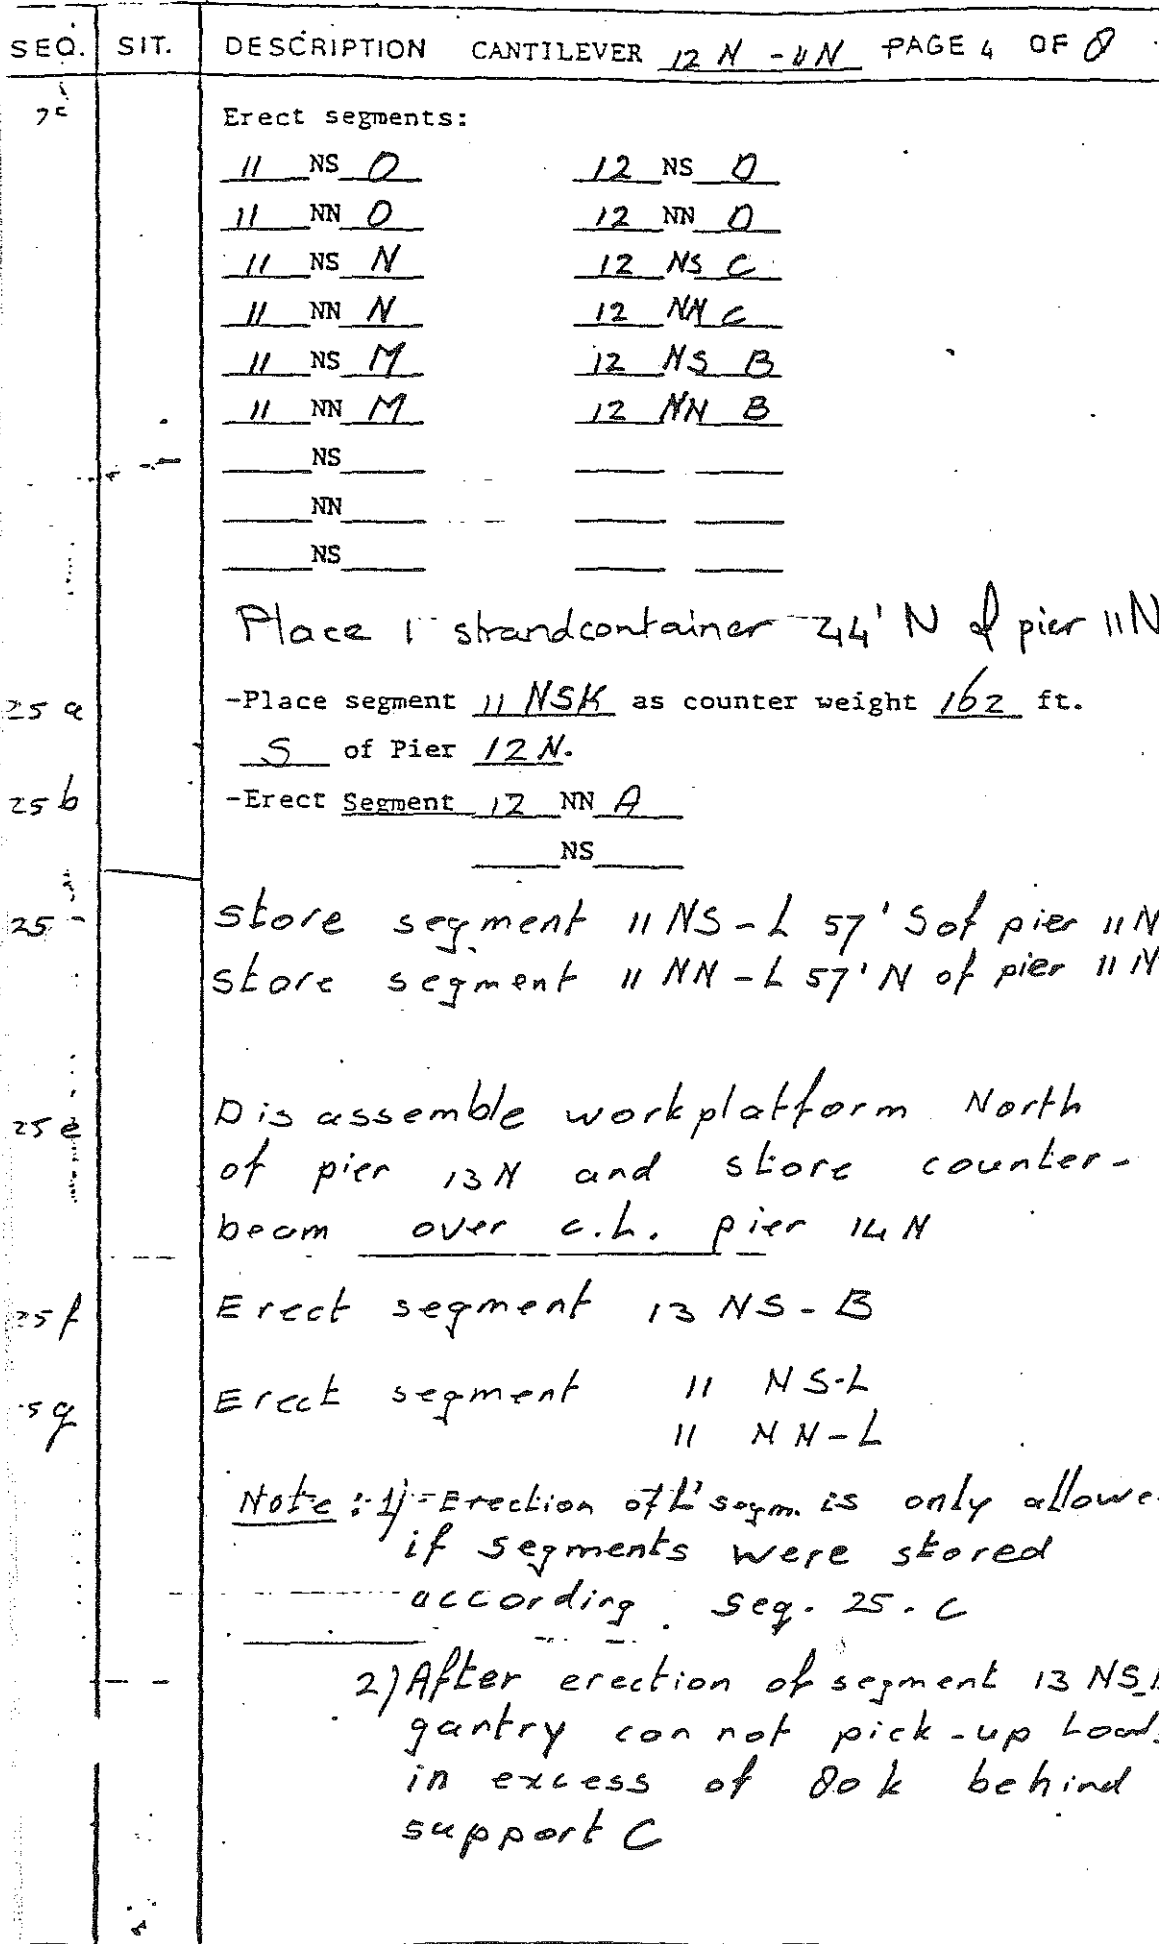 SEQ. SIT. DESCRIPTION CANTILEVER 12 N - 11 N PAGE 4 OF 8
Erect segments:
11 NS O 12 NS D
11 NN O 12 NN D
11 NS N 12 NS C
11 NN N 12 NN C
11 NS M 12 NS B
11 NN M 12 NN B
NS
NN
NS
Place 1 strandcontainer 244' N of pier 11N
25 a -Place segment 11 NSK as counter weight 162 ft.
S of Pier 12 N.
25 b -Erect Segment 12 NN A
NS
25 store segment 11 NS-L 57' S of pier 11 N
store segment 11 NN-L 57' N of pier 11 N
25 e Disassemble workplatform North
of pier 13 N and store counter-
beam over c.L. pier 14 N
25 f Erect segment 13 NS-B
5 g Erect segment 11 NS-L
11 NN-L
Note: 1) Erection of L' segm. is only allowe
if segments were stored
according seq. 25.C
2) After erection of segment 13 NS
gantry can not pick-up Load
in excess of 80 k behind
support C